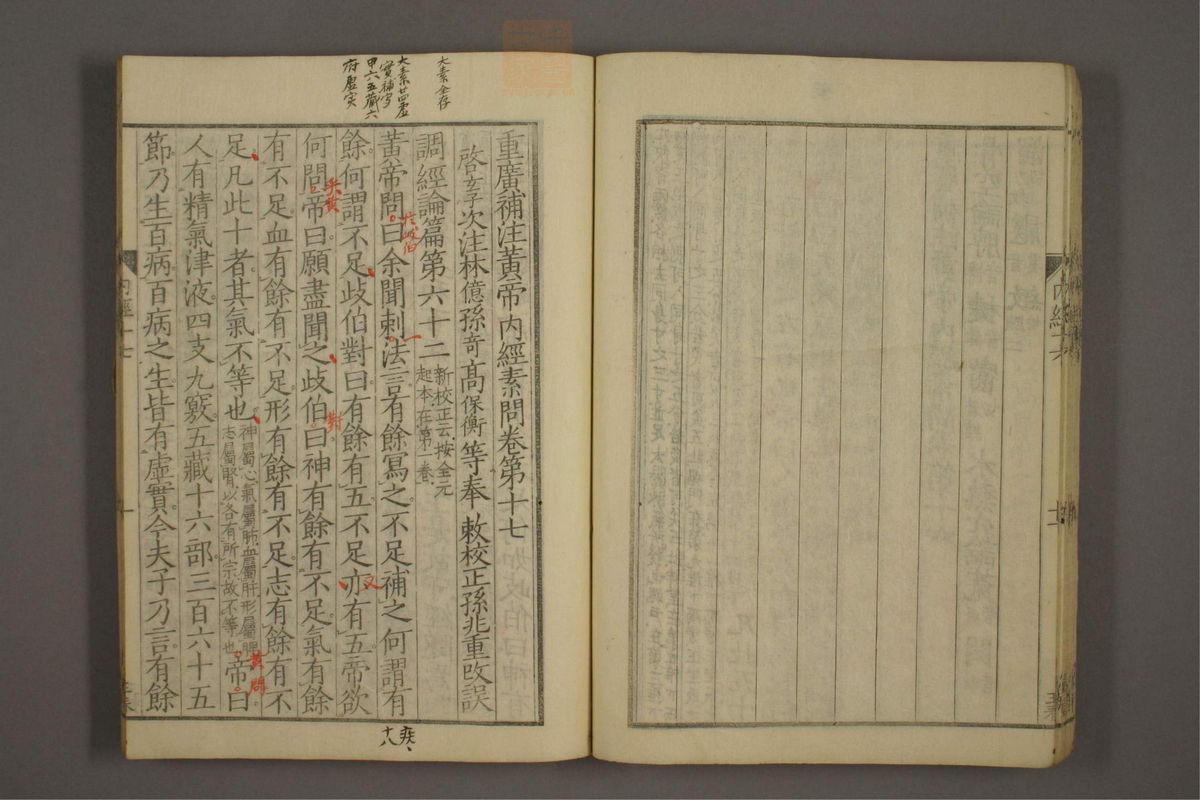 內經十六
重廣補注黃帝內經素問卷第十七
啓玄子次注林億孫奇高保衡等奉敕校正孫兆重改誤
大素全存
調經論篇第六十二
新校正云按全元
起本在第一卷
大素廿四虛
實補寫
甲六五藏六
府虛實
於岐伯
黃帝問曰余聞刺法言有餘寫之不足補之何謂有
餘何謂不足歧伯對曰有餘有五不足亦有五帝欲
又
何問帝曰願盡聞之歧伯曰神有餘有不足氣有餘
乎黃
對
有不足血有餘有不足形有餘有不足志有餘有不
足凡此十者其氣不等也
神屬心氣屬肺血屬肝形屬脾
志屬腎以各有所宗故不等也
帝曰
黃問
人有精氣津液四支九竅五藏十六部三百六十五
節乃生百病百病之生皆有虛實今夫子乃言有餘
疾
十八
內經十七
一